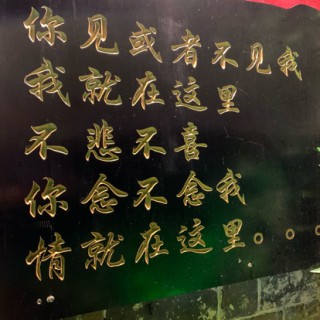 你见或者不见我
我就在这里
不悲不喜
你念不念我
情就在这里。。。